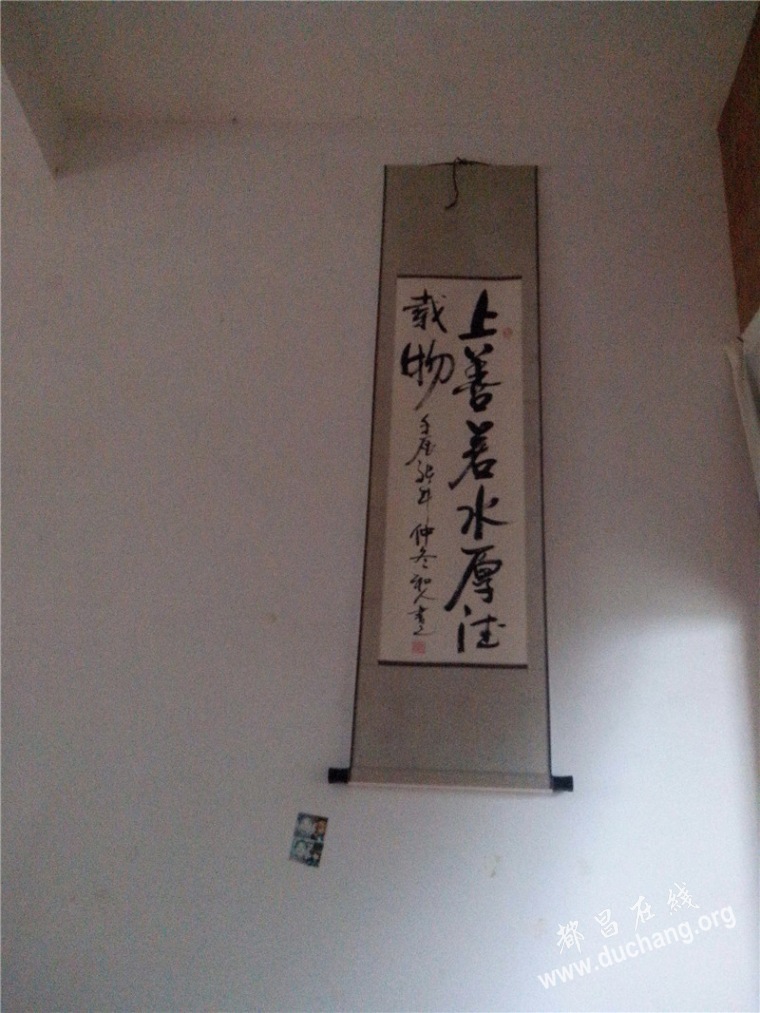 上善若水厚德
载物
壬辰龙年仲冬 书之
都昌在线
www.duchang.org